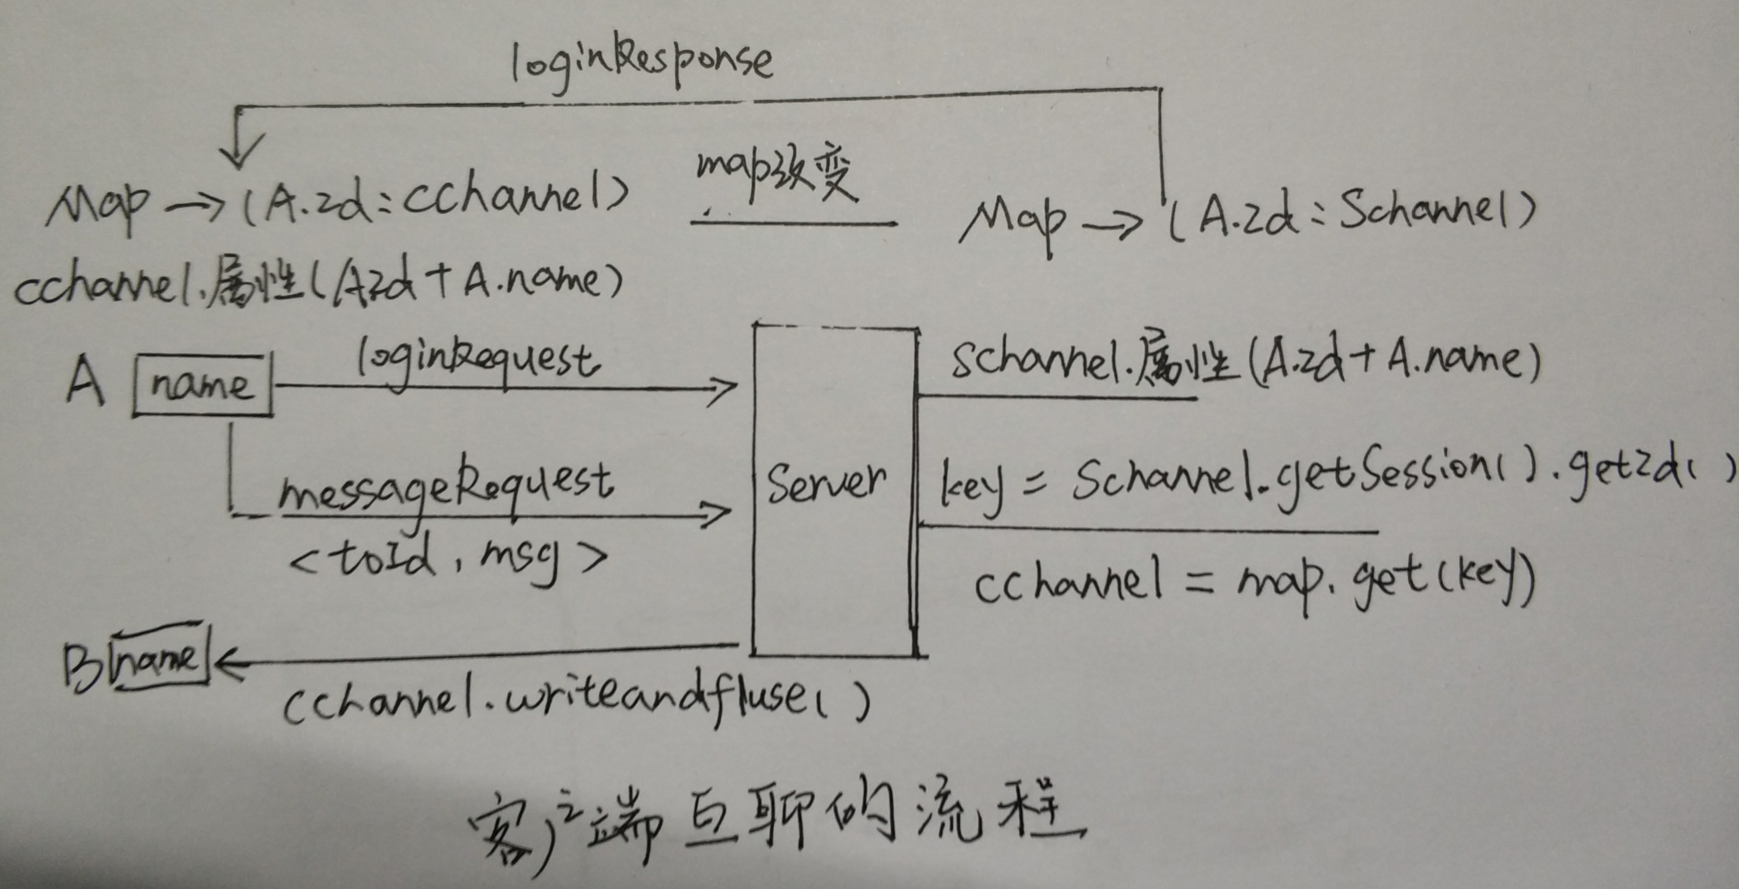 loginResponse
map改变
Map → (A.Id : cchannel)
Map → (A.Id : Schannel)
cchannel.属性(AId + A.name)
A name
loginRequest
schannel.属性(A.Id + A.name)
messageRequest
<toId, msg>
Server
key = Schannel.getSession().getId()
cchannel = map.get(key)
B name
cchannel.writeandfluse()
客户端互聊的流程